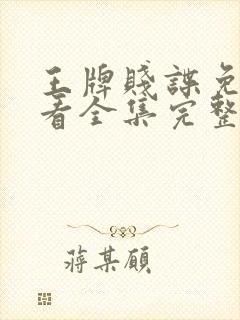 王牌賤諜免
看全集完整
蔣某願